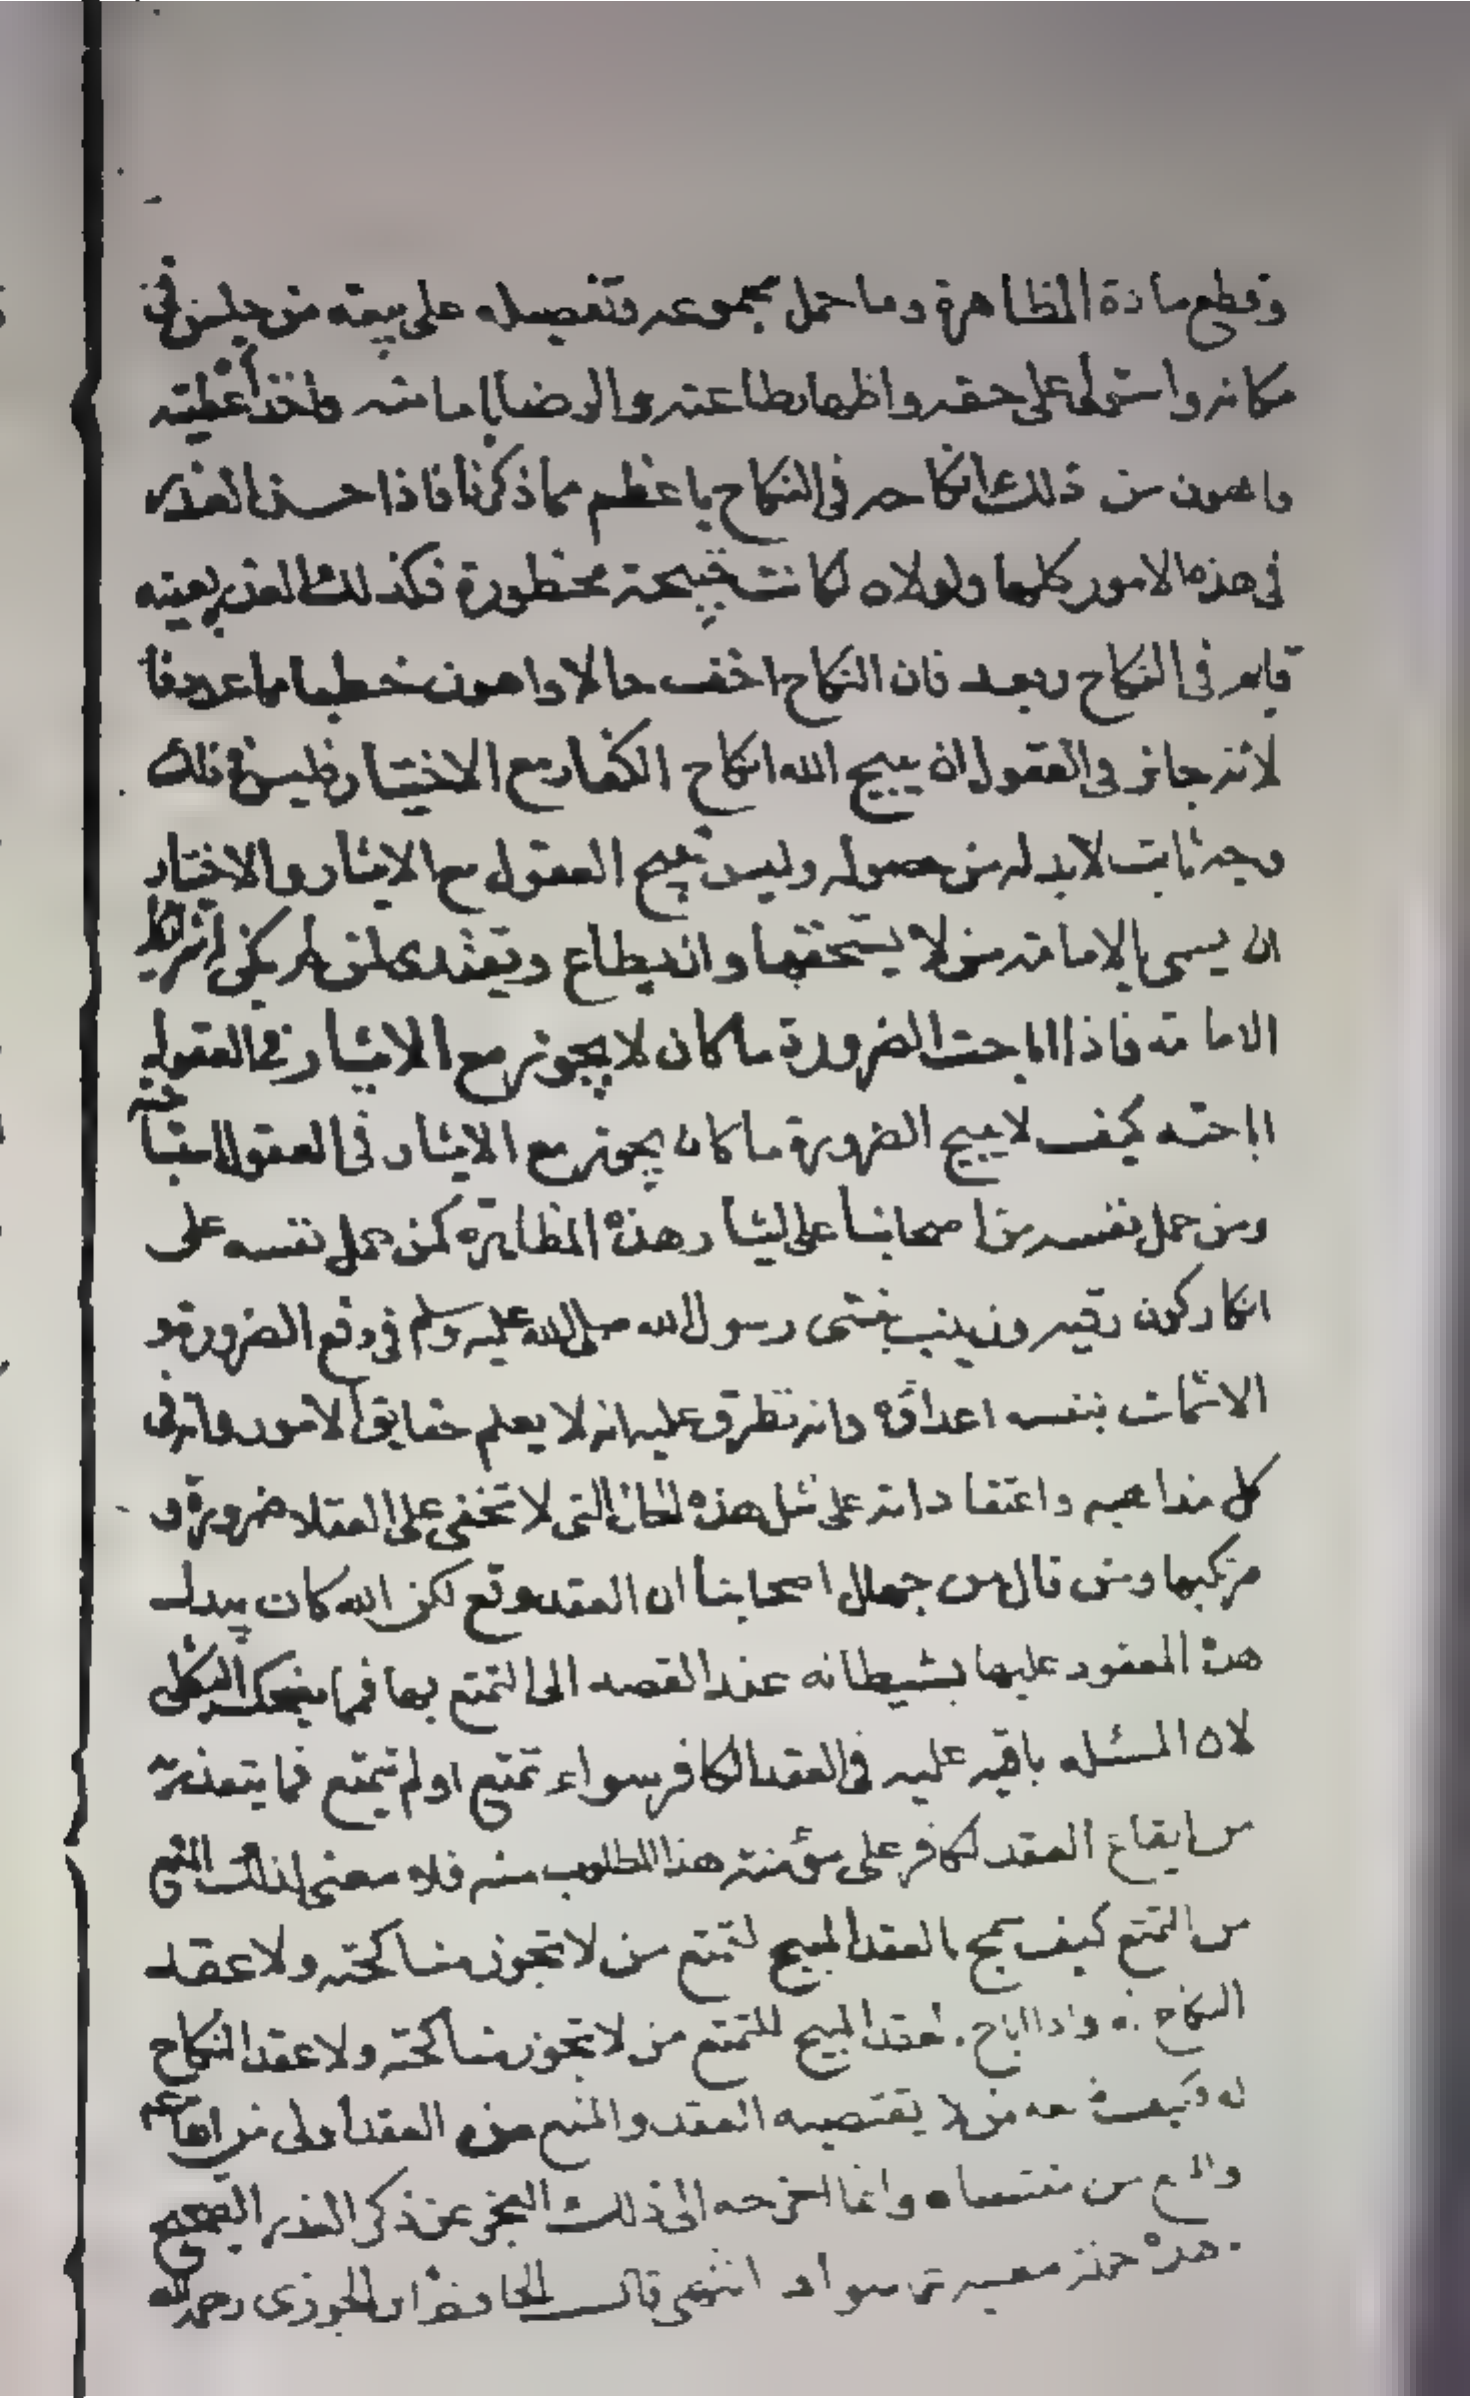 وقطع مادة المظاهرة وما حمل مجموعه وتفصيله على بيعته من جلس في
مكانه واستولى على حقه واظهار طاعته والرضا بامامته واخذ اعطيته
واهون من ذلك انكاحه في النكاح باعظم مما ذكرنا فاذا حسن العذر
في هذه الامور كلها ولولاه لكانت قبيحة محظورة فكذلك العذر بعينه
قايم في النكاح وبعد فان النكاح اخف حالا واهون خطبا مما عددنا
لأنه جائز في العقول ان يبيح الله انكاح الكفار مع الاختيار وليس في ذلك
وجه ثابت لابد له من حصوله وليس قبيح العقول مع الايثار والاختيار
ان يسمى بالامامة من لا يستحقها وان يطاع ويقتدى لمن لم يكن له شرايط
الامامة فاذا اباحت الضرورة ما كان لا يجوز مع الايثار في العقول
اباحته كيف لا يبيح الضرورة ما كان يجوز مع الايثار في العقول استباحته
ومن حمل نفسه من اصحابنا على ايثار هذه المظاهرة كمن حمل نفسه على
انكار كون رقيه وزينب بنتى رسول الله صلى الله عليه وسلم في دفع الضرورة و
الاشمات بنفسه اعداؤه وانه تطرق عليه انه لا يعلم حقايق الامور وانه في
كل مذاهبه واعتقاداته على مثل هذه الحال التى لا تخفى على العقلا ضرورة و
مرتكبها ومن قال من جهال اصحابنا ان العقد وقع لكن الله كان يبدل
هذه المعقود عليها بشيطانه عند القصد الى التمتع بها فمما يضحك الثكلى
لان المسئله باقيه عليه في العقد الكافر سواء تمتع او لم يتمتع فما يتعذر
من ايقاع العقد لكافر على مؤمنة هذا المطلوب منه فلا معنى لذلك المنع
من التمتع كيف سمح بالعقد المبيح لتمتع من لا تجوز مناكحته ولا عقد
النكاح له واذا اباح العقد المبيح للتمتع من لا تجوز مناكحته ولا عقد النكاح
له فكيف منعه من لا يقتضيه العقد والمنع من العقد أولى من ايقاعه
والمنع من مقتضاه وانما اخرجه الى ذلك العجز عن ذكر العذر الصحيح
هذه انتهى قال الحافظ ابن الجوزى رحمه الله